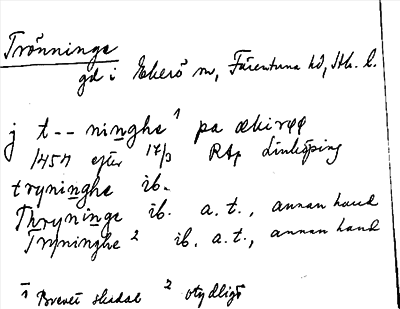 Trönninge
gd i Ekerö sn, Färentuna hd, Sth. l.
j t--ninghe¹ pa ækirøø
1454 efter 17/3 RAp Linköping
tryninghe ib.
Thryninge ib. a. t., annan hand
Tryninghe² ib. a. t., annan hand
1 Brevet skadat 2 otydligt